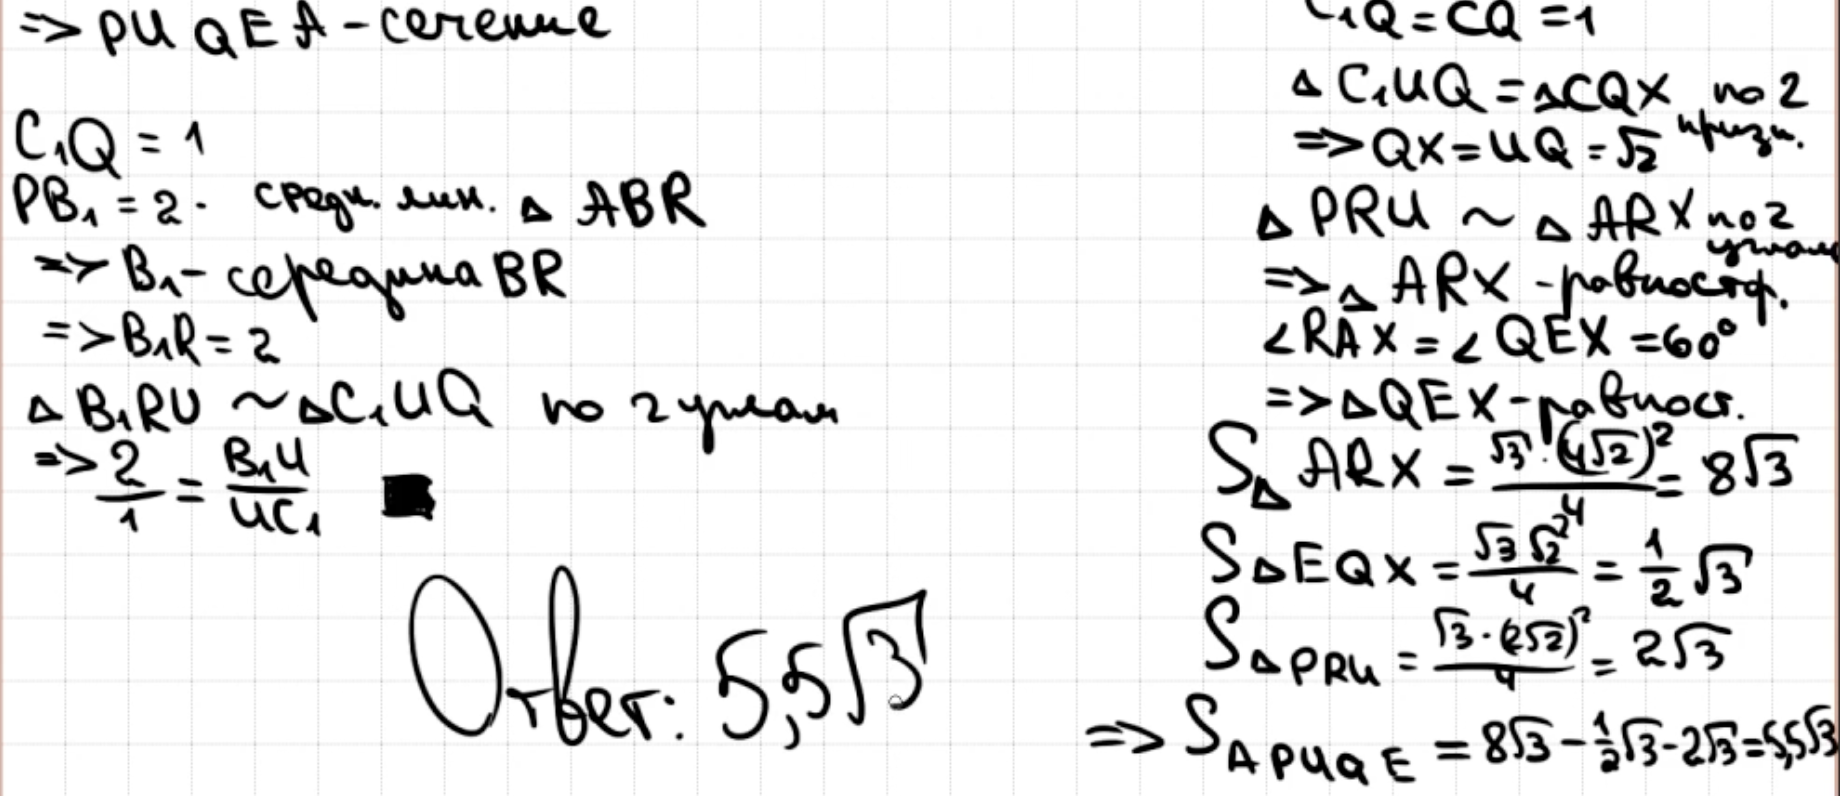 => PUQEA - сечение
C₁Q = 1
PB₁ = 2 - средн. лин. △ ABR
=> B₁ - середина BR
=> B₁R = 2
△ B₁RU ~ △C₁UQ по 2 углам
=> 2/1 = B₁U/UC₁
Ответ: 5,5√3
C₁Q = CQ = 1
△ C₁UQ = △CQX по 2 призн.
=> QX = UQ = √2
△ PRU ~ △ ARX по 2 углам
=> △ ARX - равностор.
∠RAX = ∠QEX = 60°
=> △QEX - равност.
S△ARX = √3·(4√2)²/4 = 8√3
S△EQX = √3 √2²/4 = 1/2 √3
S△PRU = √3·(2√2)²/4 = 2√3
=> S APUQE = 8√3 - 1/2√3 - 2√3 = 5,5√3